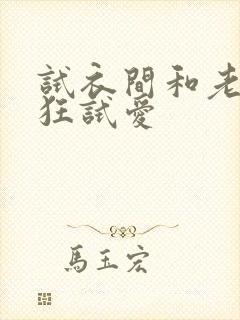 試衣間和老
狂試愛
馬玉宏